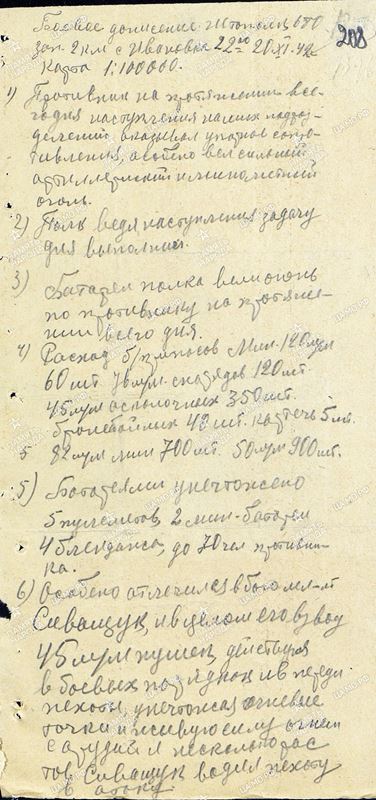 Боевое донесение Штаполк 680
зап. 2 км с Ивановка 22⁰⁰ 20.XI.42г
Карта 1:100000.
208
1) Противник на протяжении все-
го дня наступления наших подраз-
делений оказывал упорное сопро-
тивления, особено вел сильный
артиллерийский и минометный
огонь.
2) Полк ведя наступления задачу
дня выполнил.
3) Батареи полка вели огонь
по противнику на протяже-
нии всего дня.
4) Расход б/припасов Мин. 120 мум
60 шт. 76 мум. снарядов 120 шт.
45 мум осколочных 350 шт.
бронебойных 48 шт. картечь 5 шт.
82 мум мин 700 шт. 50 мум 900 шт.
5) Батареями уничтожено
5 пулеметов, 2 мин. батареи
4 блендажа, до 70 чел противни-
ка.
6) Особено отлечился в бою мл. л-т
Сиващук, и в целом его взвод
45 мум пушек, действуя
в боевых порядках и в переди
пехоты, уничтожая огневые
точки и живую силу огнем
с орудий и несколько рас
тов. Сиващук водил пехоту
в атаку.